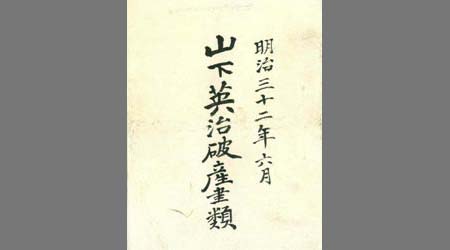 明治三十二年六月
山下英治破産書類